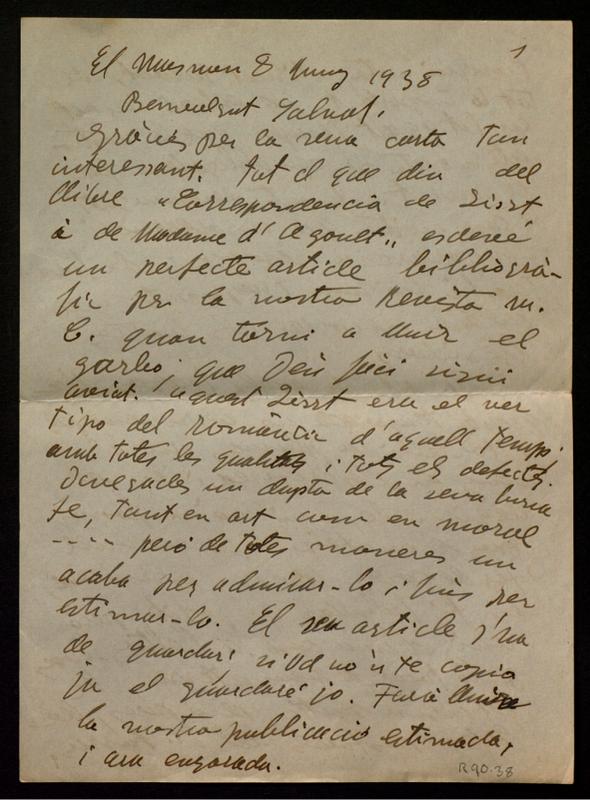 1
El Masnou 8 Juny 1938
Benvolgut Salvat.
Gràcies per la seva carta tan
interessant. Tot el que diu del
llibre "Correspondencia de Liszt
i de Madame d'Agoult" esdevé
un perfecte article bibliogrà-
fic per la nostra Revista M.
C. quan torni a lluir el
garbo, que Deu faci sigui
aviat. Aquest Liszt era el ver
tipo del romàntic d'aquell temps
amb totes les qualitats i tots els defectes.
Devegades un dupta de la seva bona
fe, tant en art com en moral
---- peró de totes maneres un
acaba per admirar-lo i fins per
estimar-lo. El seu article s'ha
de guardar; si Vd no'n te copia
ja el guardaré jo. Farà lluir
la nostra publicació estimada,
i ara enyorada.
R90.38